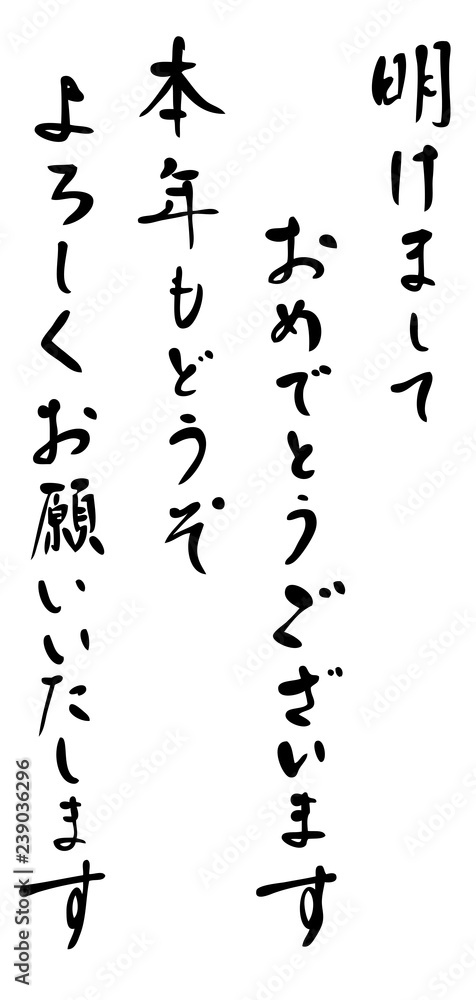 明けまして
おめでとうございます
本年もどうぞ
よろしくお願いいたします
Adobe Stock | #239036296